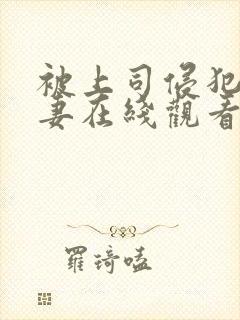 被上司侵犯
妻在綫觀看
羅琦嗑